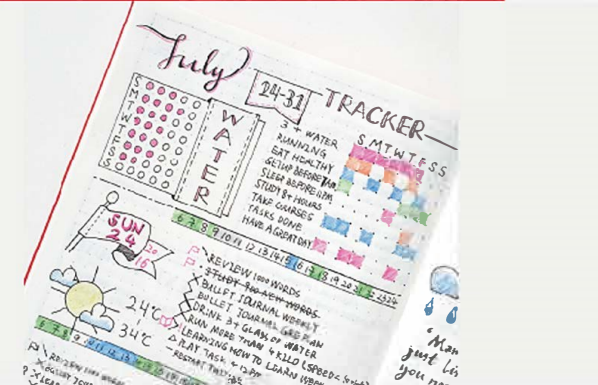 July
24-31
TRACKER
S
M
T
W
T
F
S
S
WATER
S M T W T F S S
3 + WATER
RUNNING
EAT HEALTHY
GET UP BEFORE
SLEEP BEFORE 11PM
STUDY 8+ HOURS
TAKE COURSES
TASKS DONE
HAVE A GREAT DAY
6 7 8 9 10 11 12 13 14 15 16 17 18 19 20 21 22 23 24
SUN
24
20
16
REVIEW 1000 WORDS
STUDY NEW WORDS
BULLET JOURNAL WEEKLY
BULLET JOURNAL
DRINK 3+ GLASS OF WATER
RUN MORE THAN 4 KILO (SPEED<
LEARNING HOW TO LEARN WEEK
PLAY TASK
RESTART
24°C
34°C
6 7 8 9 10 11 12 13
"Man
just lis
you no